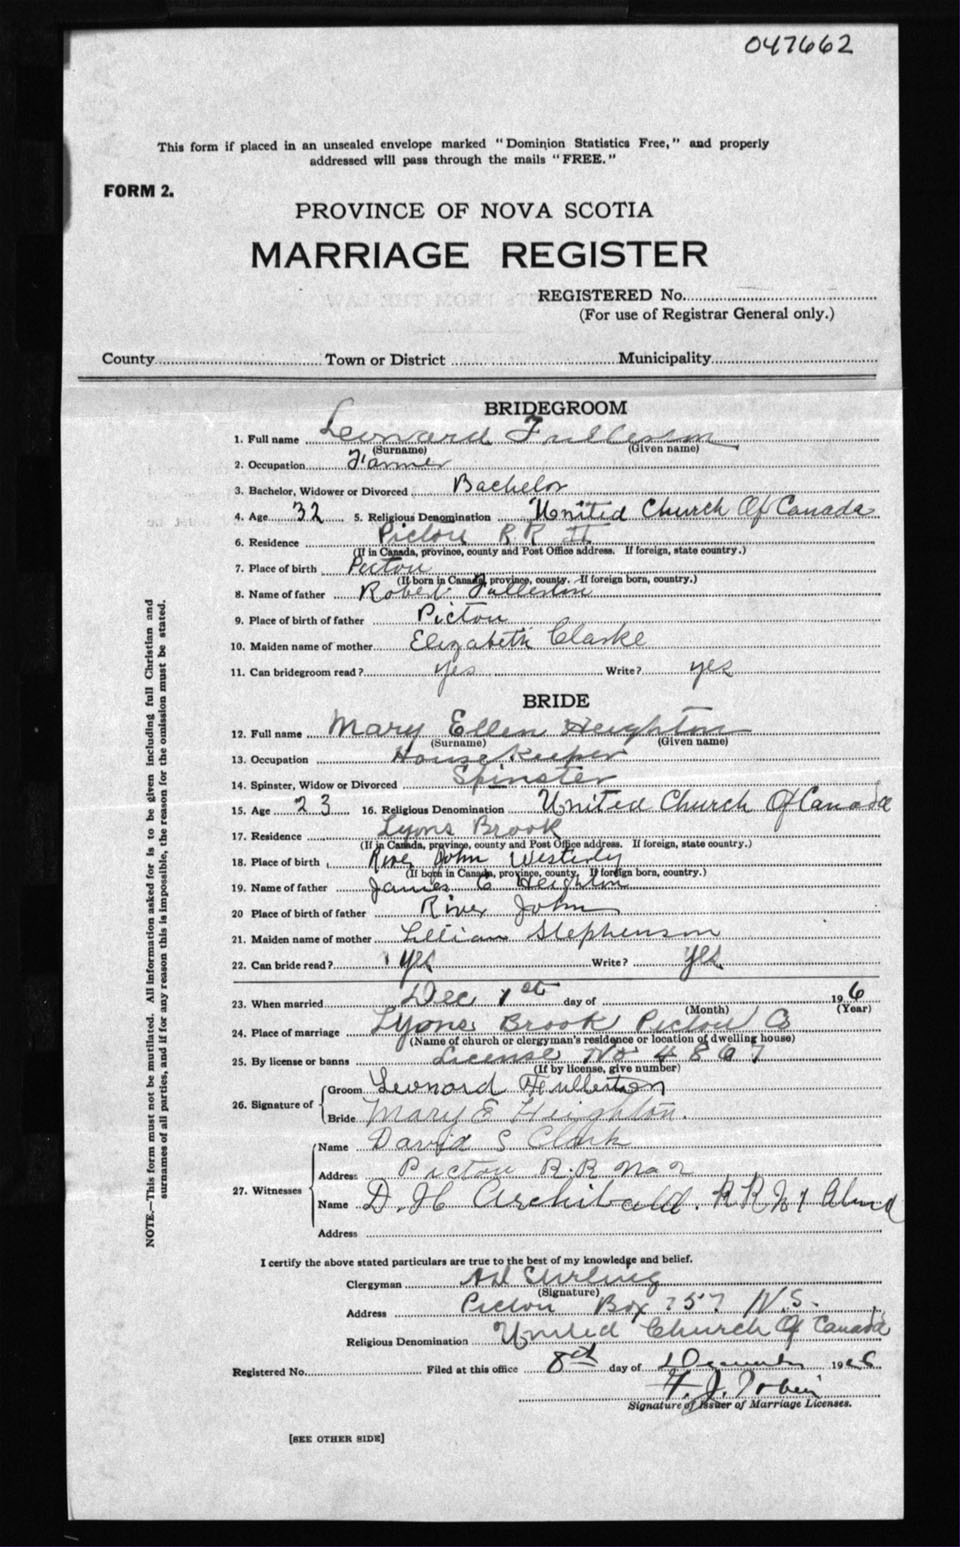 047662
This form if placed in an unsealed envelope marked "Dominion Statistics Free," and properly
addressed will pass through the mails "FREE."
FORM 2.
PROVINCE OF NOVA SCOTIA
MARRIAGE REGISTER
REGISTERED No.
(For use of Registrar General only.)
County Town or District Municipality
BRIDEGROOM
1. Full name Leonard Fullerton
(Surname) (Given name)
2. Occupation Farmer
3. Bachelor, Widower or Divorced Bachelor
4. Age 32 5. Religious Denomination United Church Of Canada
6. Residence Pictou R R II
(If in Canada, province, county and Post Office address. If foreign, state country.)
7. Place of birth Pictou
(If born in Canada, province, county. If foreign born, country.)
8. Name of father Robert Fullerton
9. Place of birth of father Pictou
10. Maiden name of mother Elizabeth Clarke
11. Can bridegroom read? yes Write? yes
BRIDE
12. Full name Mary Ellen Heighton
(Surname) (Given name)
13. Occupation House Keeper
14. Spinster, Widow or Divorced Spinster
15. Age 23 16. Religious Denomination United Church Of Canada
17. Residence Lyons Brook
(If in Canada, province, county and Post Office address. If foreign, state country.)
18. Place of birth River John Westerly
(If born in Canada, province, county. If foreign born, country.)
19. Name of father James C Heighton
20 Place of birth of father River John
21. Maiden name of mother Lillian Stephenson
22. Can bride read? yes Write? yes
23. When married Dec 1st day of 19 6
(Month) (Year)
24. Place of marriage Lyons Brook Pictou Co
(Name of church or clergyman's residence or location of dwelling house)
25. By license or banns License No 4867
(If by license, give number)
26. Signature of Groom Leonard Fullerton
Bride Mary E Heighton.
27. Witnesses
Name David S Clark
Address Pictou R.R No 2
Name D. H Archibald. R R No 1
Address
I certify the above stated particulars are true to the best of my knowledge and belief.
Clergyman
(Signature)
Address Pictou Box 257 N.S.
Religious Denomination United Church Of Canada
Registered No. Filed at this office 8th day of December 1926
F. J. Tobin
Signature of Issuer of Marriage Licenses.
[SEE OTHER SIDE]
NOTE.—This form must not be mutilated. All information asked for is to be given including full Christian and
surnames of all parties, and if for any reason this is impossible, the reason for the omission must be stated.